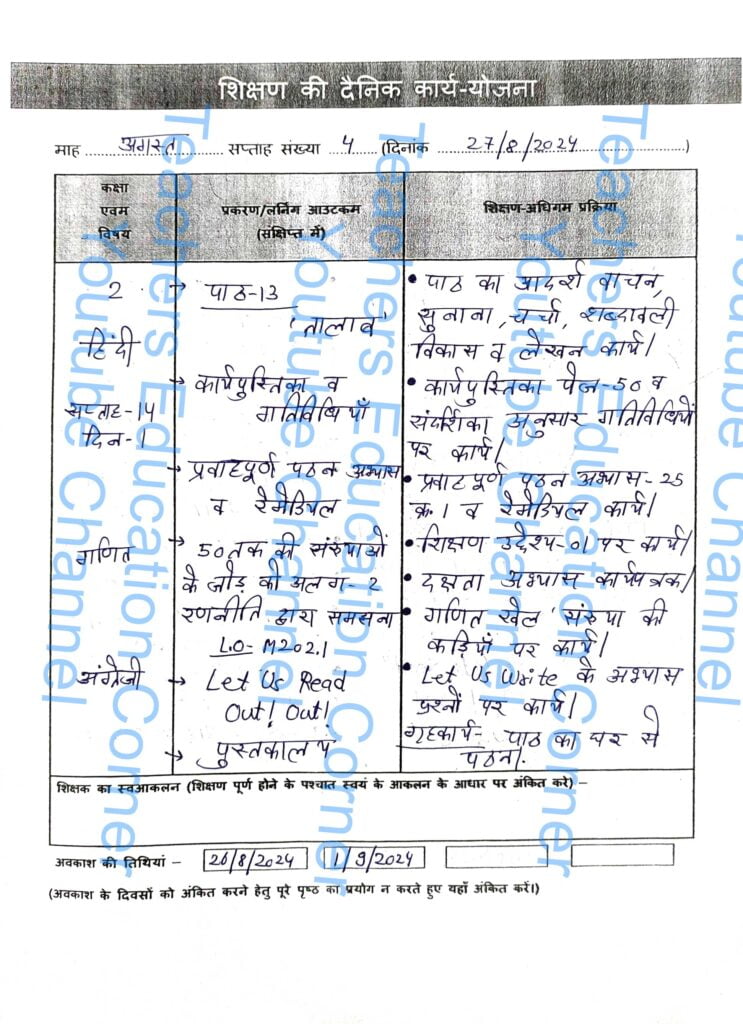 शिक्षण की दैनिक कार्य-योजना
माह ..... अगस्त ..... सप्ताह संख्या ... 4 ... (दिनांक ..... 27/8/2024 .....)
कक्षा
एवम
विषय
प्रकरण/लर्निंग आउटकम
(संक्षिप्त में)
शिक्षण-अधिगम प्रक्रिया
2
हिंदी
सप्ताह-14
दिन-1
→ पाठ-13
'तालाब'
→ कार्यपुस्तिका व
गतिविधियाँ
→ प्रवाहपूर्ण पठन अभ्यास
व रेमेडियल
• पाठ का आदर्श वाचन,
सुनाना, चर्चा, शब्दावली
विकास व लेखन कार्य।
• कार्यपुस्तिका पेज-50 व
संदर्शिका अनुसार गतिविधियों
पर कार्य।
• प्रवाहपूर्ण पठन अभ्यास-25
क 1 व रेमेडियल कार्य।
गणित
→ 50 तक की संख्याओं
के जोड़ की अलग-2
रणनीति द्वारा समझना
LO-M202.1
• शिक्षण उद्देश्य-01 पर कार्य।
• दक्षता अभ्यास कार्यपत्रक।
• गणित खेल 'संख्या की
कड़ियाँ पर कार्य।
अंग्रेजी
→ Let Us Read
Out! Out!
→ पुस्तकालय
• Let Us Write के अभ्यास
प्रश्नों पर कार्य।
गृहकार्य- पाठ का घर से
पठन।
शिक्षक का स्वआकलन (शिक्षण पूर्ण होने के पश्चात स्वयं के आकलन के आधार पर अंकित करे) –
अवकाश की तिथियां – 26/8/2024 1/9/2024
(अवकाश के दिवसों को अंकित करने हेतु पूरे पृष्ठ का प्रयोग न करते हुए यहाँ अंकित करें।)
Teachers Education Corner
Youtube Channel
Teachers Education Corner
Youtube Channel
Teachers Education Corner
Youtube Channel